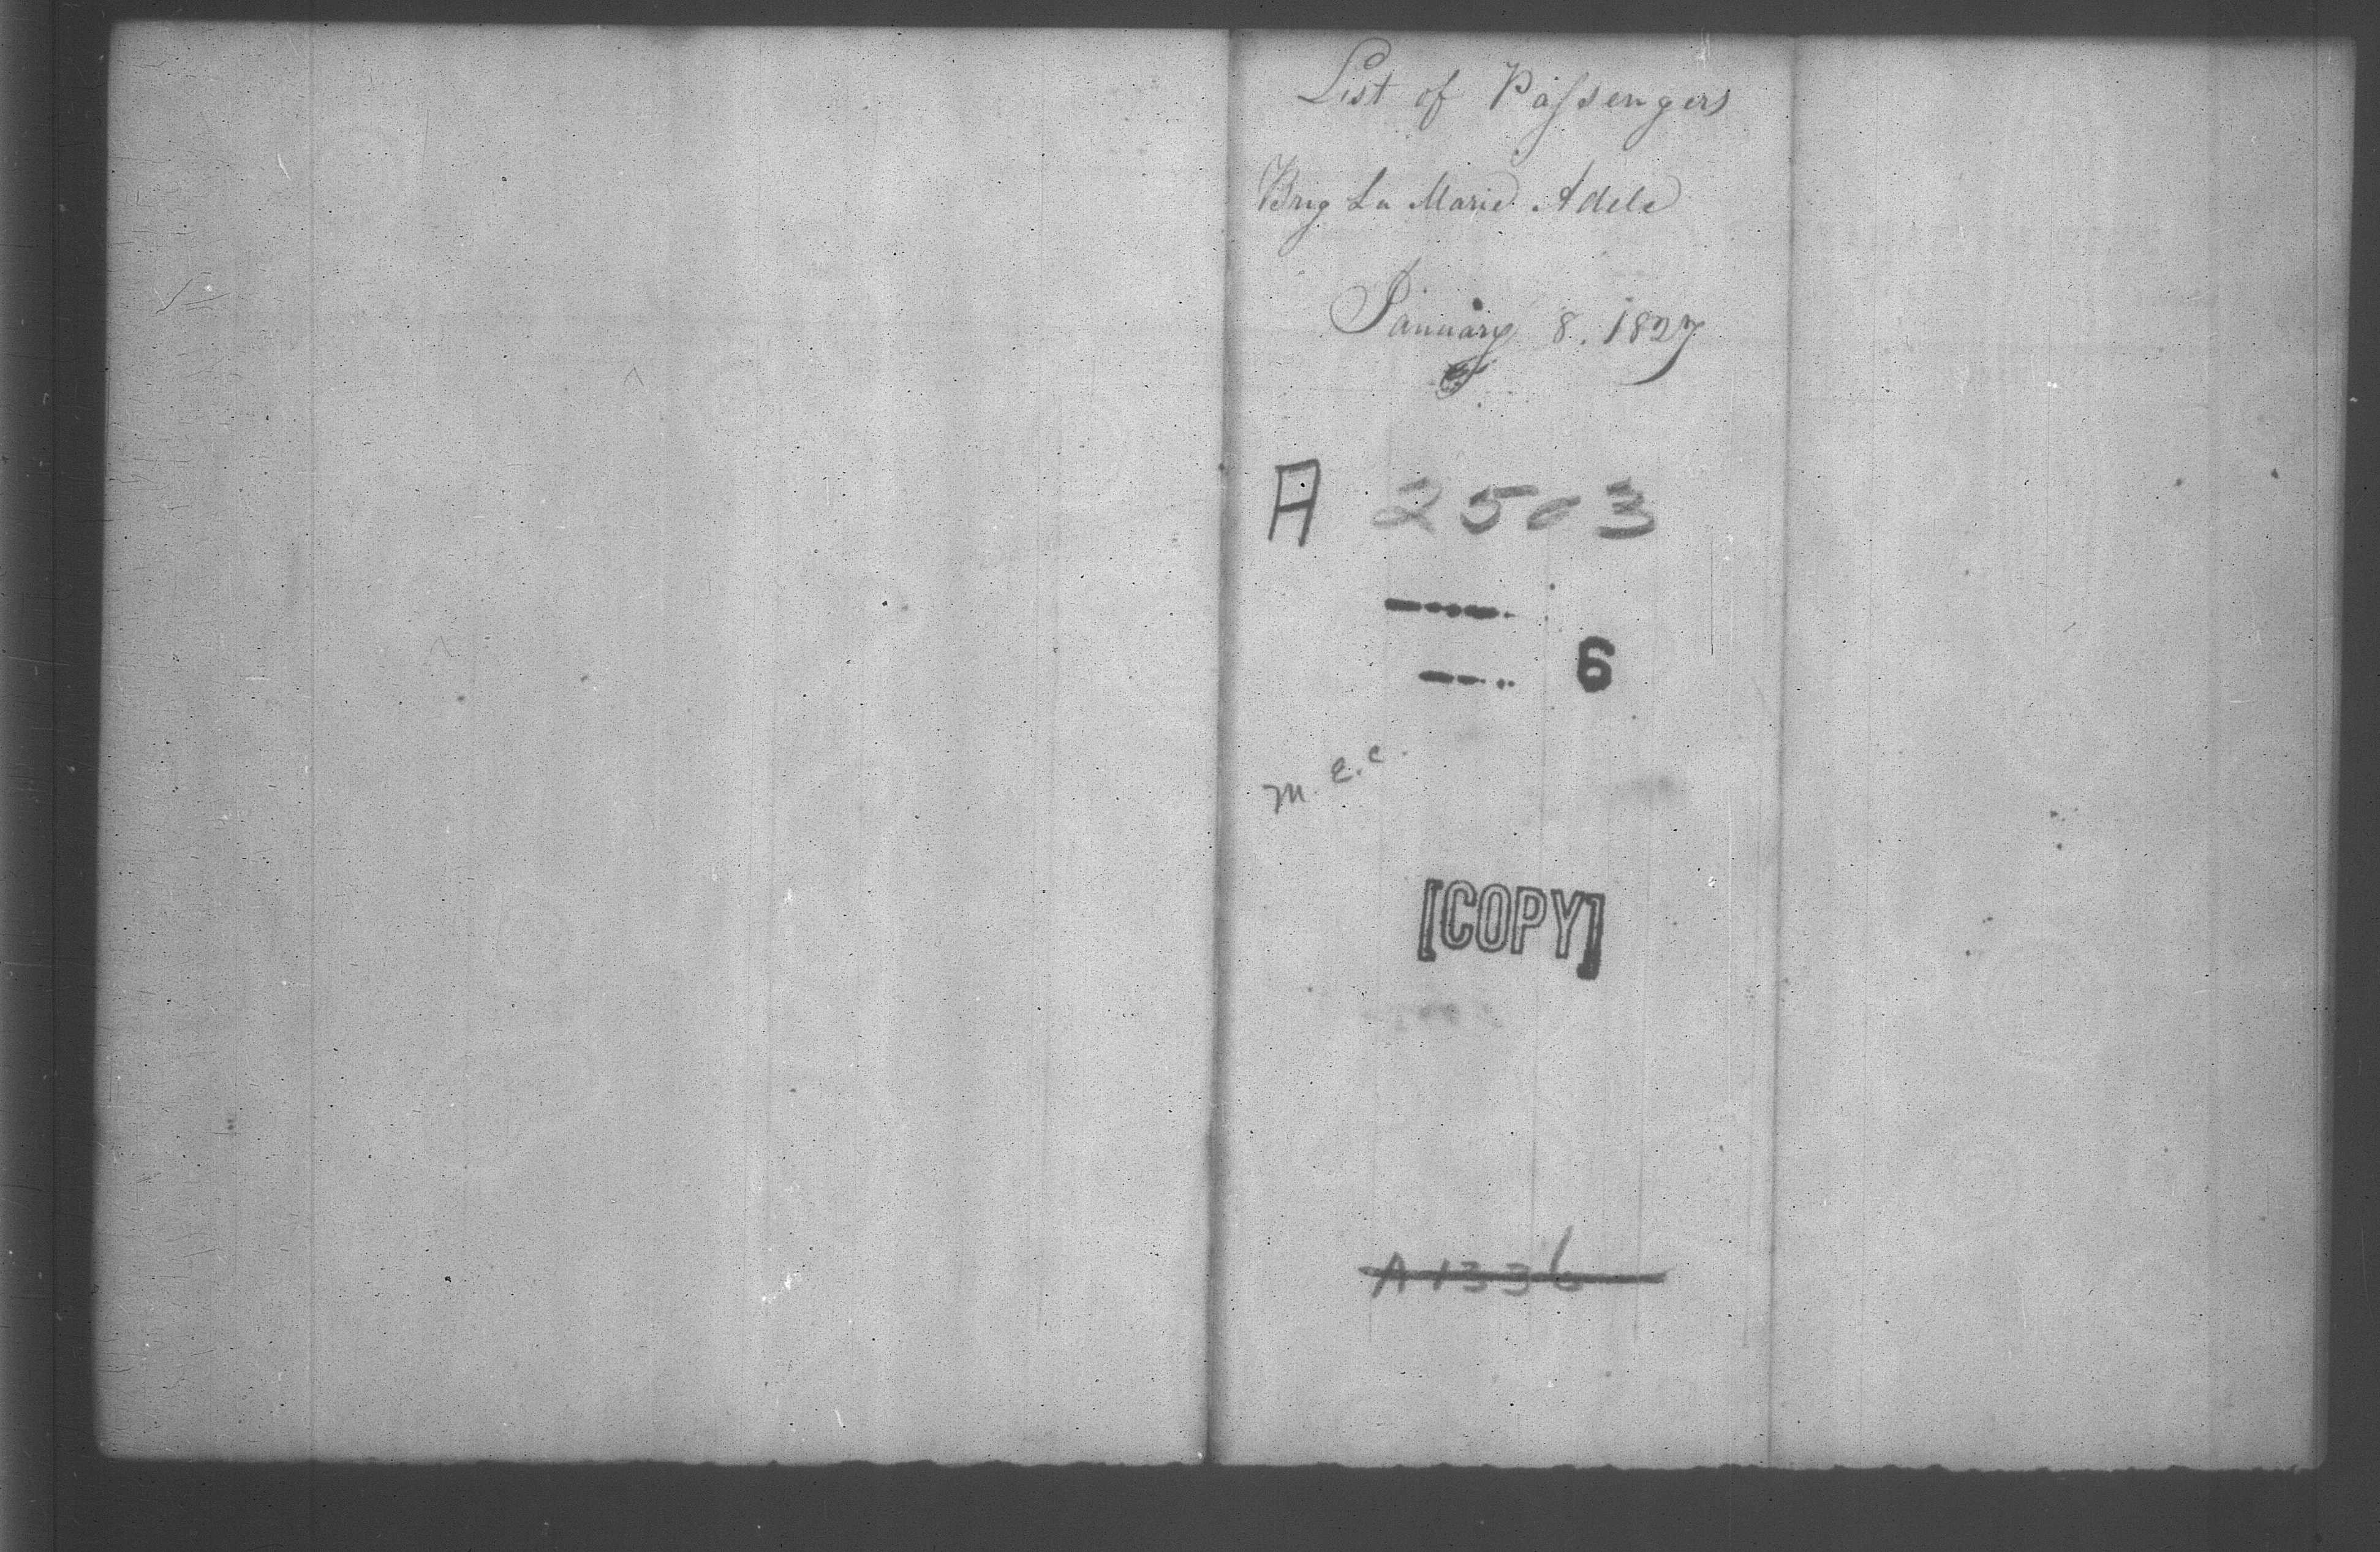 List of Passengers
Brig La Marie Adele
January 8. 1827
A 2503
6
M. E. C.
[COPY]
A 1336